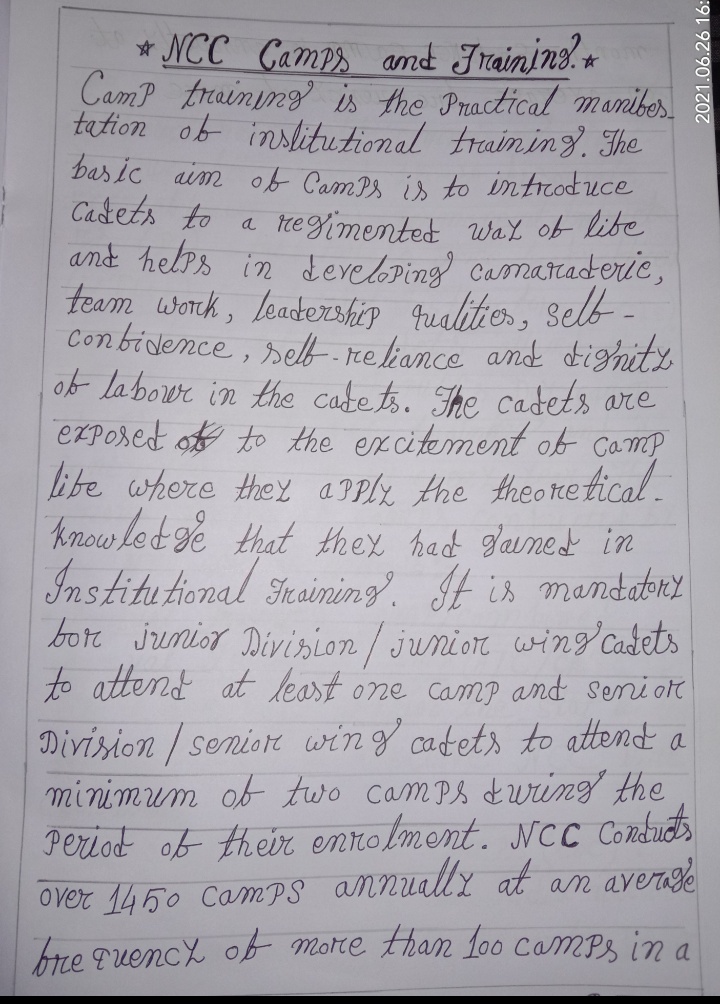 * NCC Camps and Training. *
Camp training is the Practical manifes-
tation of institutional training. The
basic aim of Camps is to introduce
Cadets to a regimented way of life
and helps in developing camaraderie,
team work, leadership qualities, self-
confidence, self-reliance and dignity
of labour in the cadets. The cadets are
exposed to the excitement of camp
life where they apply the theoretical-
knowledge that they had gained in
Institutional Training. It is mandatory
for junior Division / junior wing cadets
to attend at least one camp and senior
Division / senior wing cadets to attend a
minimum of two camps during the
Period of their enrolment. NCC Conducts
over 1450 camps annually at an average
frequency of more than 100 camps in a
2021.06.26 16: